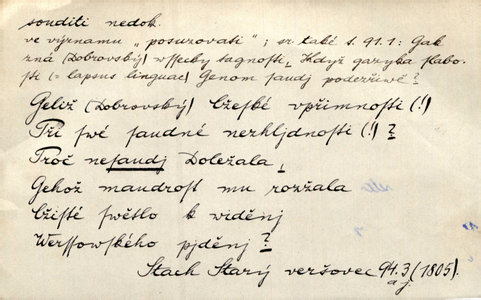 souditi nedok.
ve významu „posuzovati“; sr. také s. 91.1: Gak
zná (Dobrovský) wssecky tagnosti, Když gazyka slabo-
sti (= lapsus linguae) Genom saudj podezřiwě?
Geliž (Dobrovský) Cžeské vpřimnosti (!)
Při swé saudné nezhljdnosti (!) ?
Proč nesaudj Doležala,
Gehož maudrost mu rozžala
Cžisté swětlo k widěnj
Werssowského pjděnj ?
Stach Starý veršovec 94.3 (1805).
a j.